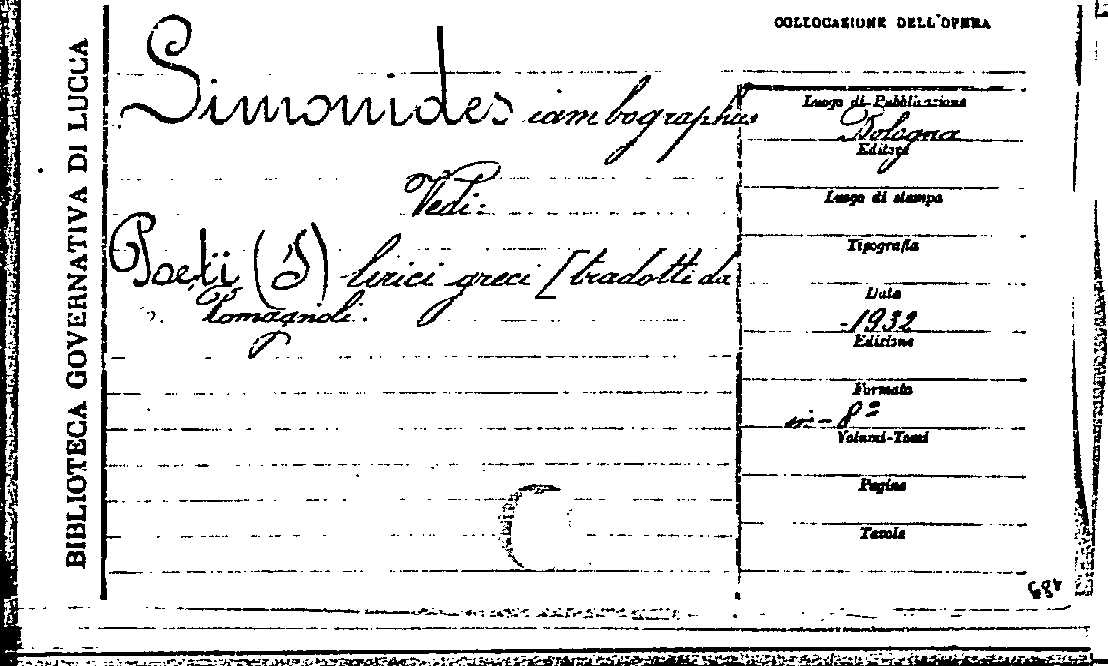 BIBLIOTECA GOVERNATIVA DI LUCCA
COLLOCAZIONE DELL'OPERA
Simonides iambographus
Vedi:
Poeti (I) lirici greci [tradotti da
Romagnoli.
Luogo di Pubblicazione
Bologna
Editore
Luogo di stampa
Tipografia
Data
-1932
Edizione
Formato
in-8º
Volumi-Tomi
Pagine
Tavole